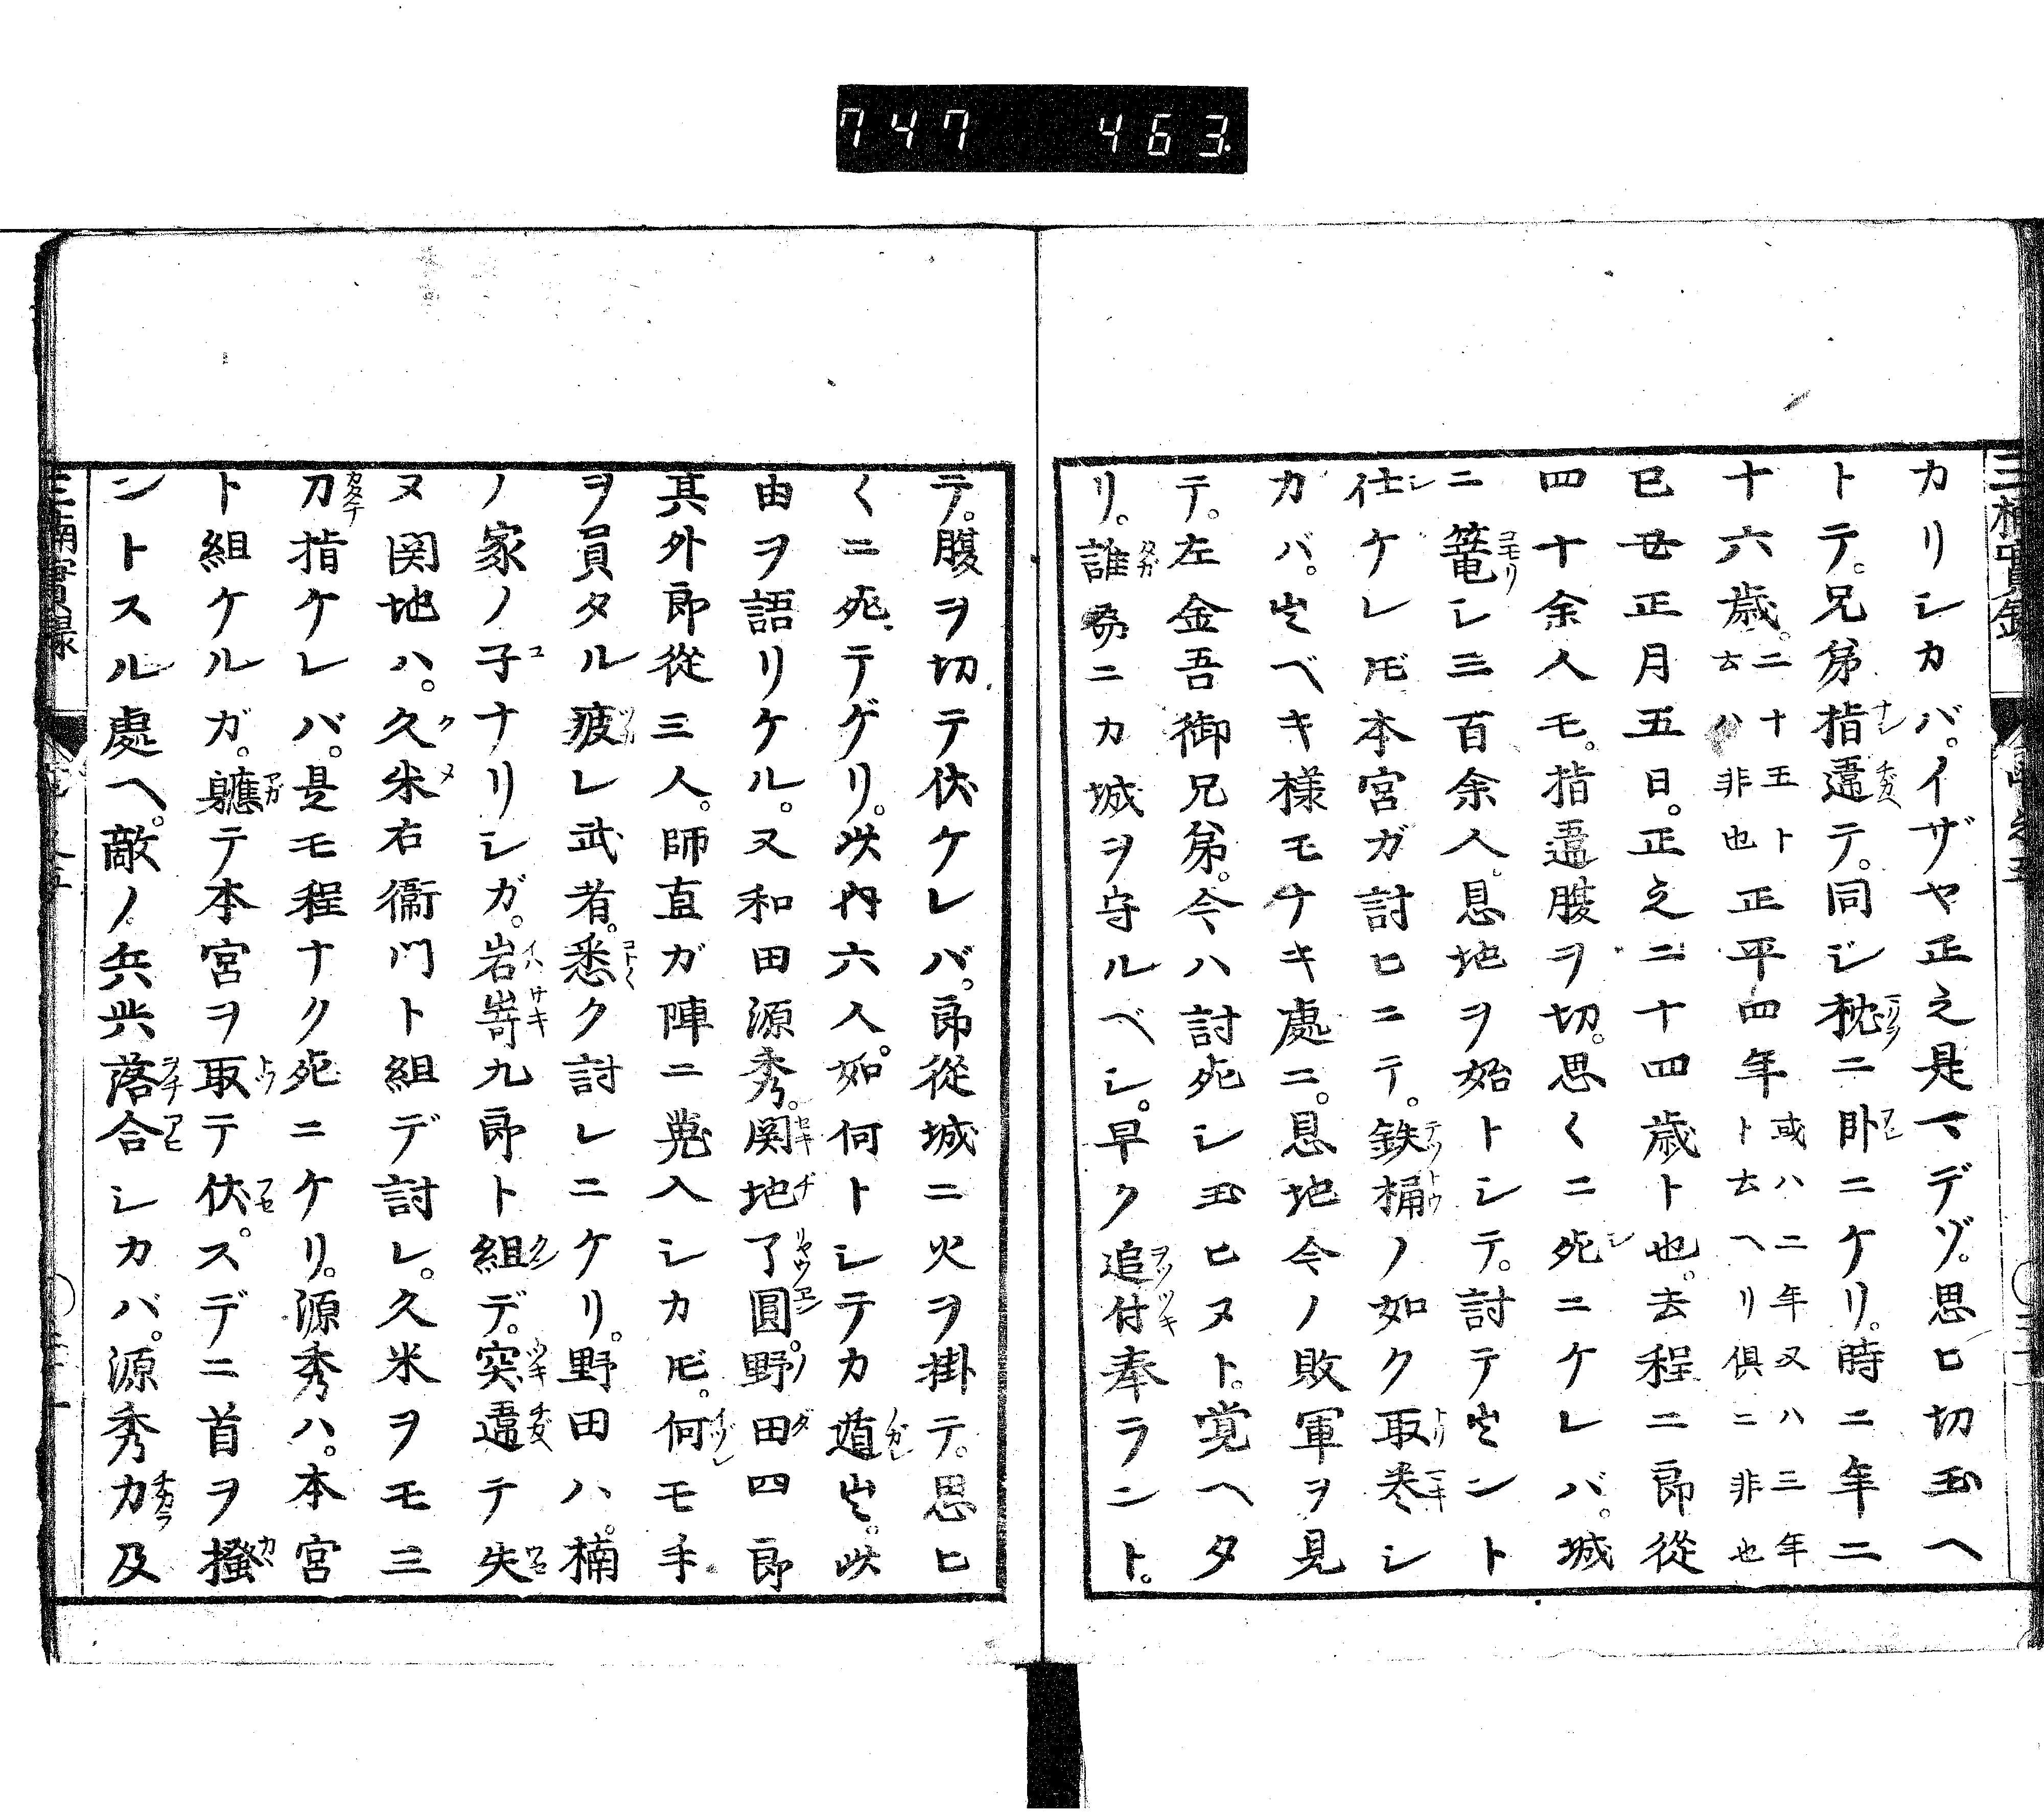 747 463
カリシカバ。イザヤ正之是マデゾ。思ヒ切玉へ
トテ。兄弟指違テ。同シ枕ニ臥ニケリ。時ニ年二
十六歳。二十五ト云ハ非也正平四年或ハ二年又ハ三年ト云ヘリ倶ニ非也
已丑正月五日。正之二十四歳ト也。去程ニ郎従
四十余人モ。指違腹ヲ切。思〱ニ死ニケレバ。城
ニ篭シ三百余人。恩地ヲ始トシテ。討テ出ントト
仕ケレ𪜈本宮ガ討ヒニテ。鉄桶ノ如ク取巻シ
カバ。出ベキ様モナキ處ニ。恩地今ノ敗軍ヲ見
テ。左金吾御兄弟。今ハ討死シ玉ヒヌト。覚ヘタ
リ。誰為ニカ城ヲ守ルベシ。早ク追付奉ラント。
テ。腹ヲ切テ伏ケレバ。郎従城ニ火ヲ掛テ。思ヒ
〱ニ死テゲリ。此内六人。如何トシテカ遁出。此
由ヲ語リケル。又和田源秀。関地了圓。野田四郎
其外郎従三人。師直ガ陣ニ入シカ𪜈。何モ手
ヲ員タル疲レ武者。悉ク討レニケリ。野田ハ。楠
ノ家ノ子ナリシガ。岩嵜九郎ト組デ。突違テ失
ヌ関地ハ。久米右衞門ト組デ討レ。久米ヲモ三
刀指ケレバ。是モ程ナク死ニケリ。源秀ハ。本宮
ト組ケルガ。軈テ本宮ヲ取テ伏。スデニ首ヲ掻
ントスル處へ。敵ノ兵共落合シカバ。源秀力及